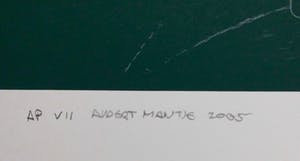 AP VII RUPERT MANTJE 2005